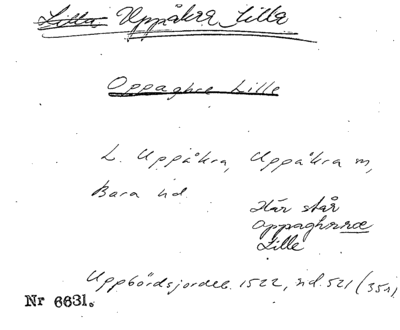 Lilla Uppåkra Lilla
Oppaghra Lille
L. Uppåkra, Uppåkra sn,
Bara hd
Här står
Oppaghræ
Lille
Uppbördsjordeb. 1522, sid. 521 (351)
Nr 6631.